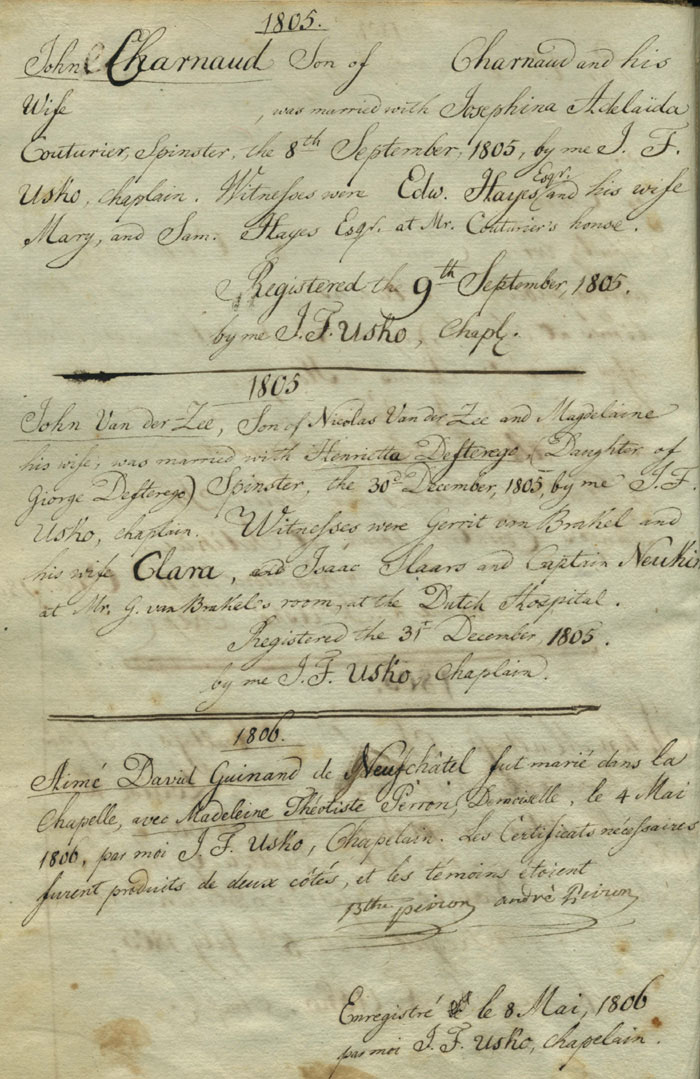 1805.
John Charnaud Son of Charnaud and his
Wife , was married with Josephina Adelaïda
Couturier, Spinster, the 8th September, 1805, by me J. F.
Usko, chaplain. Witnesses were Edw. Hayes Esqr. and his wife
Mary, and Sam. Hayes Esqr. at Mr. Couturier's house.
Registered the 9th September, 1805.
by me J. F. Usko, Chapl.
1805
John Van der Zee, Son of Nicolas Van der Zee and Magdelaine
his wife, was married with Henrietta Defterego, (Daughter of
Giorge Defterego) Spinster, the 30d December, 1805, by me J. F.
Usko, chaplain. Witnesses were Gerrit van Brakel and
his wife Clara, and Isaac Haars and Captain
at Mr. G. van Brakel's room, at the Dutch Hospital.
Registered the 31t December, 1805.
by me J. F. Usko, Chaplain.
1806.
Aimé David Guinand de Neufchâtel fut marié dans la
Chapelle, avec Madeleine Théotiste Perron, Demoiselle, le 4 Mai
1806, par moi J. F. Usko, Chapelain. Les Certificats nécessaires
furent produits de deux côtés, et les témoins étoient
peiron andré Peiron
Enregistré le 8 Mai, 1806
par moi J. F. Usko, chapelain.